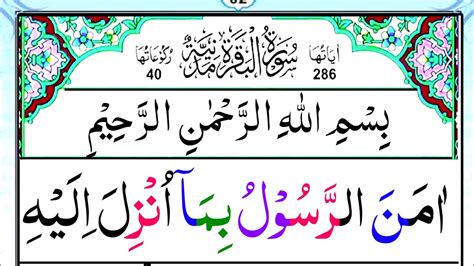 اٰيَاتُهَا 286 سُوْرَةُ الْبَقَرَةِ مَدَنِيَّةٌ رُكُوْعَاتُهَا 40
بِسْمِ اللهِ الرَّحْمٰنِ الرَّحِيْمِ
اٰمَنَ الرَّسُوْلُ بِمَاۤ اُنْزِلَ اِلَيْهِ